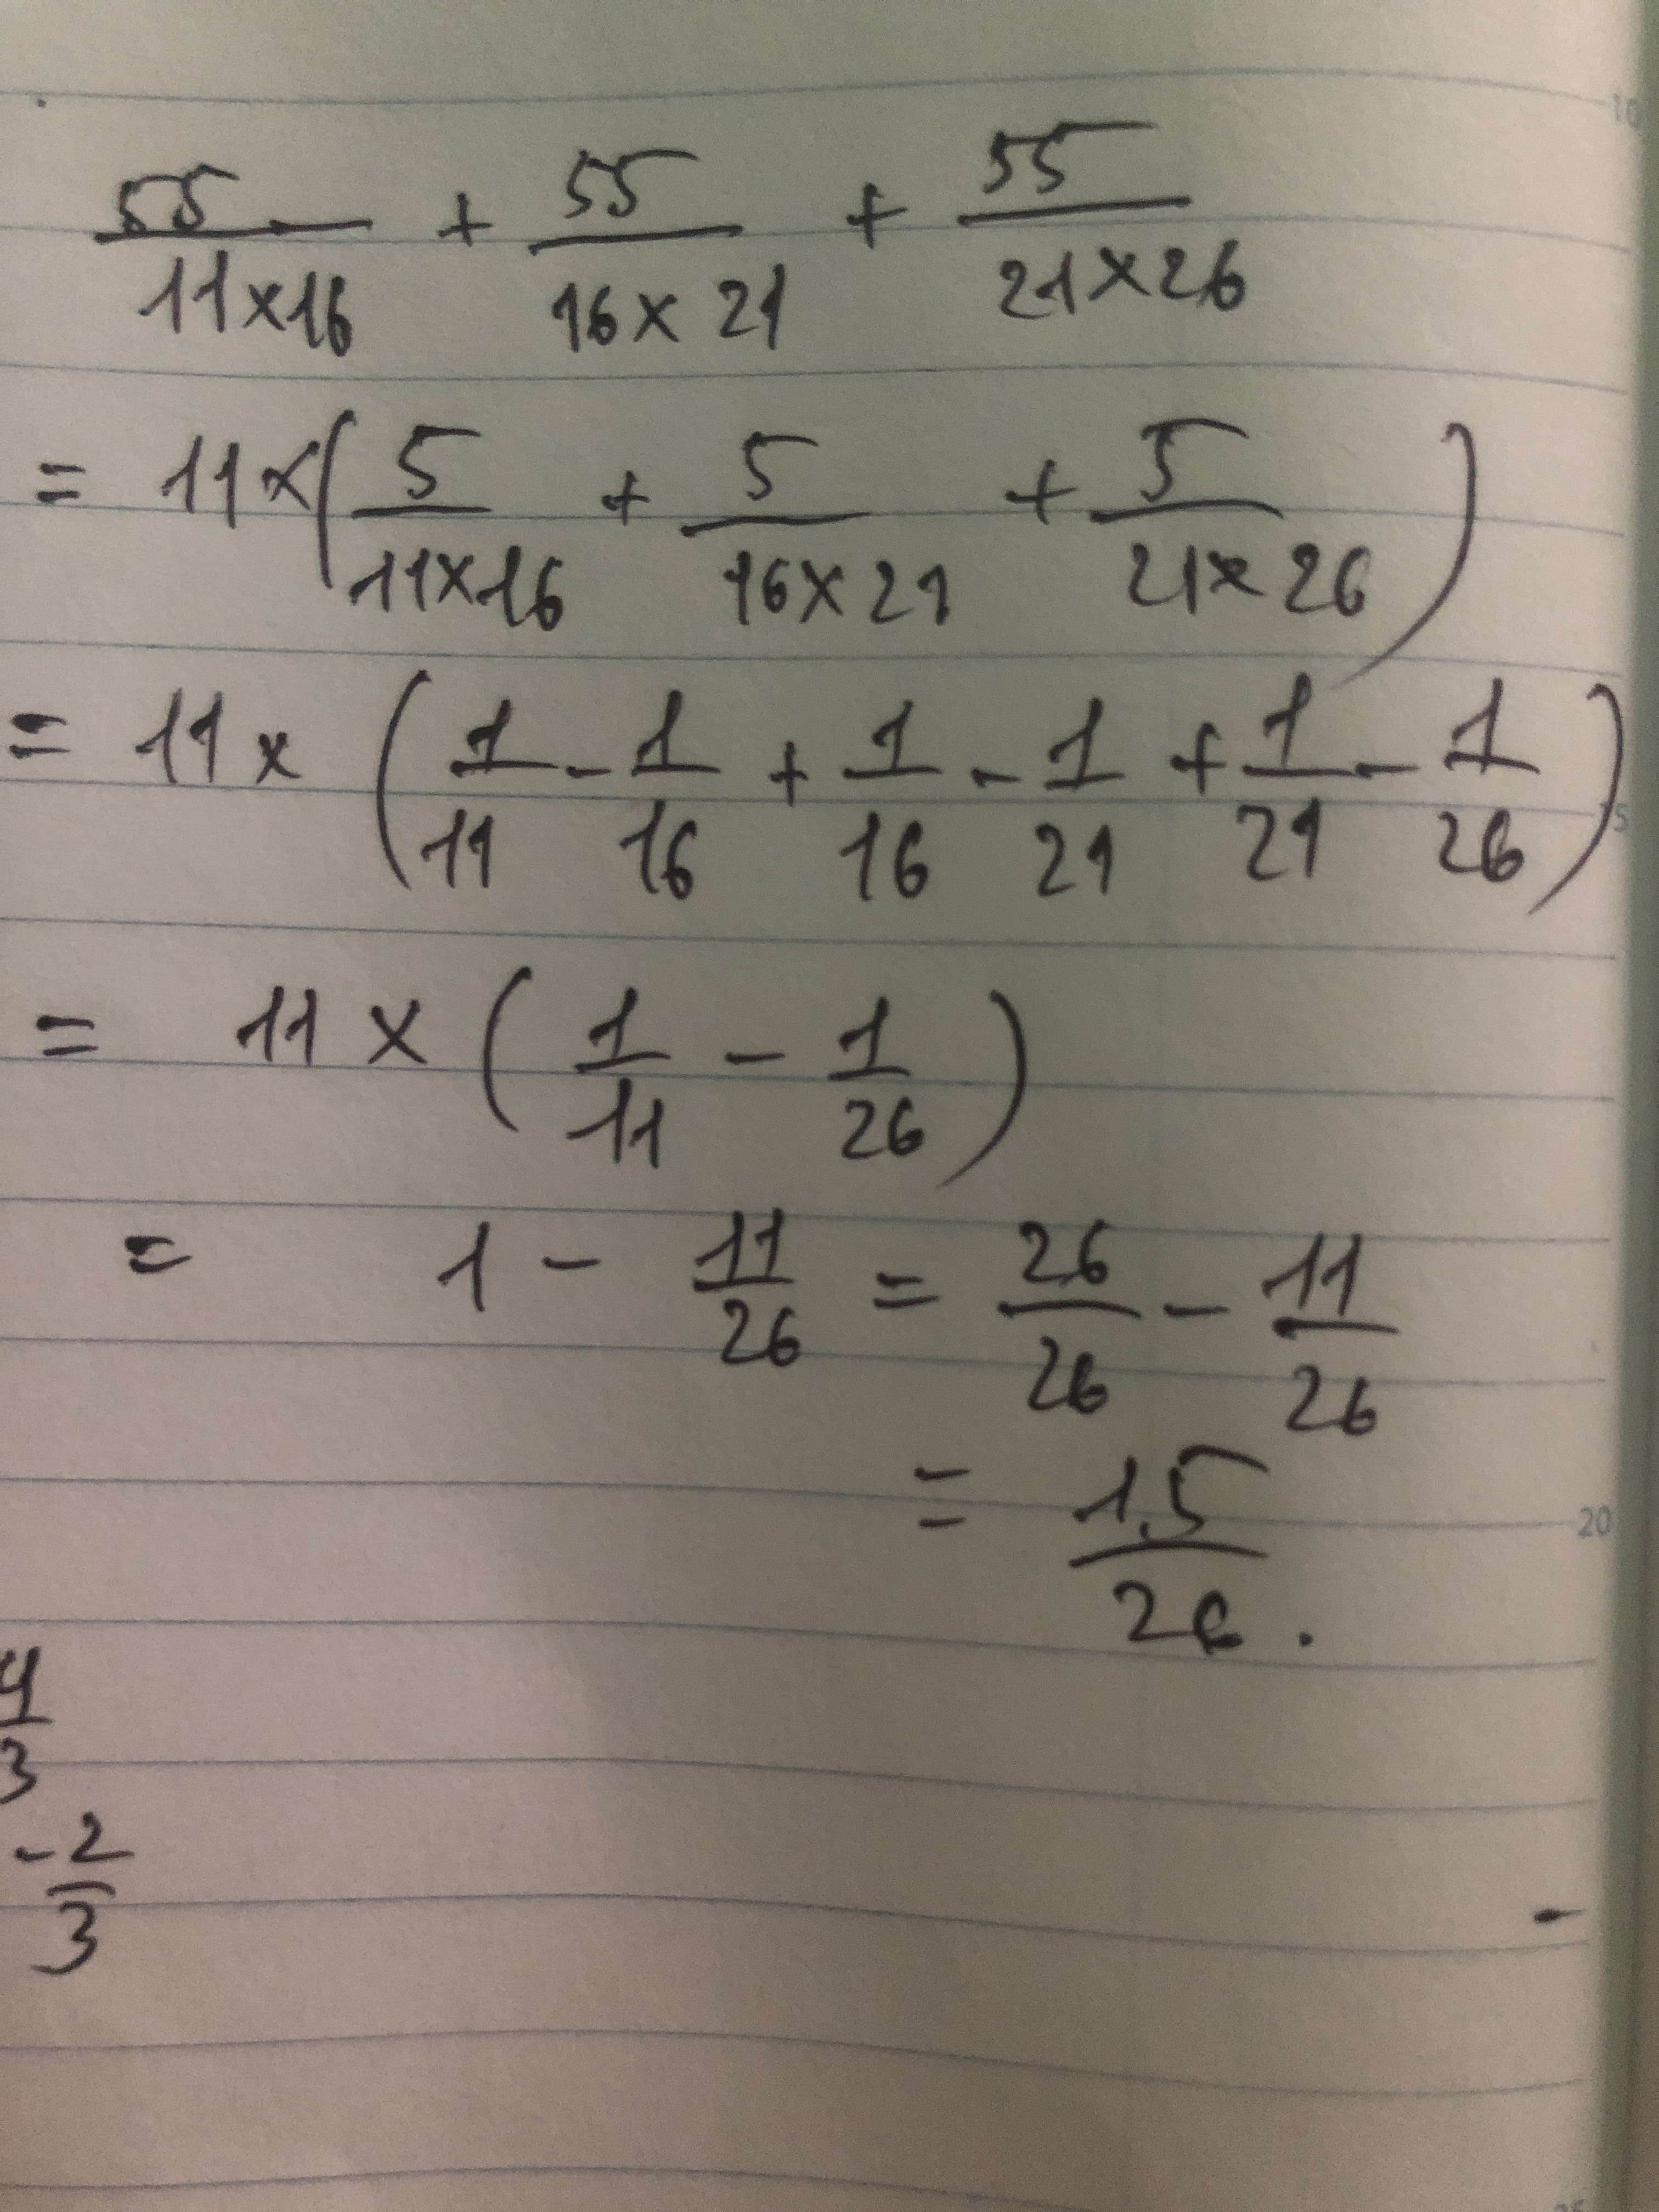 10
55/(11×16) + 55/(16×21) + 55/(21×26)
= 11×(5/(11×16) + 5/(16×21) + 5/(21×26))
= 11×(1/11 - 1/16 + 1/16 - 1/21 + 1/21 - 1/26)
= 11×(1/11 - 1/26)
= 1 - 11/26 = 26/26 - 11/26
= 15/26.
20
4/3
-2/3